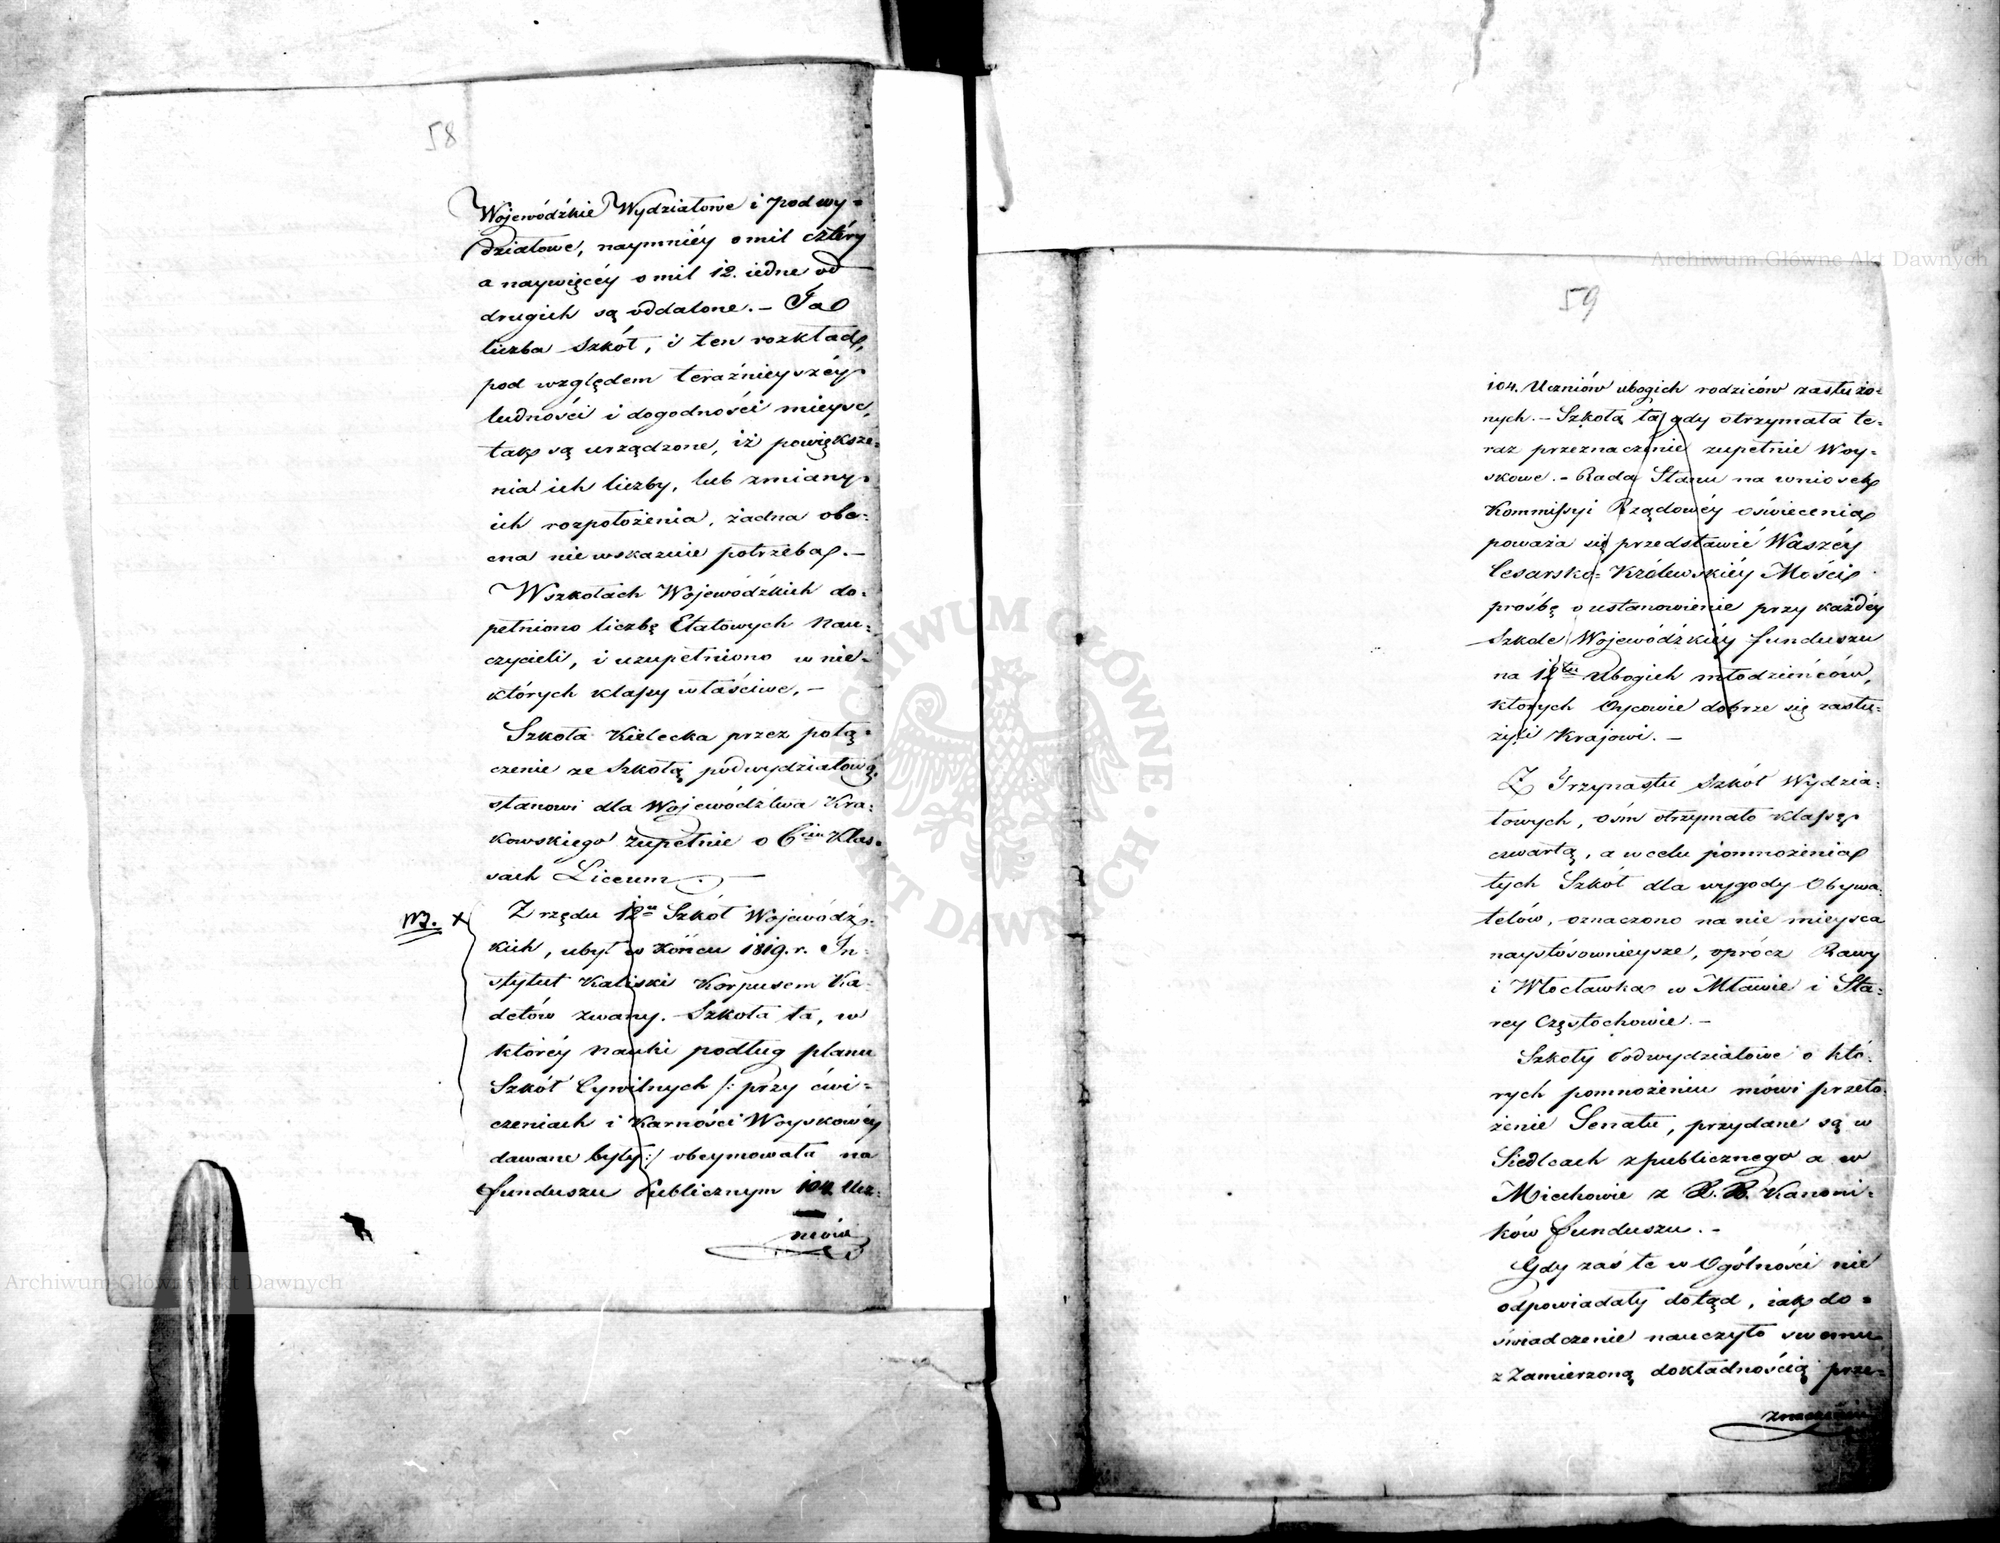 58
Wojewódźkie Wydziałowe i Podwy=
działowe, naymniéy o mil cztéry
a naywięcéy o mil 12. iedne od
drugich są oddalone. – Ta
liczba Szkół, i ten rozkład,
pod względem teraźnieyszéy
ludności i dogodności mieysc,
tak są urządzone, iż powiększe=
nia ich liczby, lub zmiany
ich rozpołożenia, żadna obe=
cna nie wskazuie potrzeba. –
W szkołach Wojewódzkich do=
pełniono liczbę Etatowych Nau=
czycieli, i uzupełniono w nie=
których klassy właściwe, –
Szkoła Kielecka przez połą=
czenie ze Szkołą podwydziałową,
stanowi dla Województwa Kra=
kowskiego zupełnie o 6ciu Klas=
sach Liceum. –
NB. x Z rzędu 12u Szkół Wojewódź=
kich, ubył w Końcu 1819. r. In=
stytut Kaliski Korpusem Ka=
detów zwany. – Szkoła ta, w
któréy Nauki podług planu
Szkół Cywilnych /: przy ćwi=
czeniach i Karności Woyskowéy
dawane były :/ obeymowała na
funduszu Publicznym 104. Ucz=
niów
59
104. Uczniów ubogich rodziców zasłużo=
nych. – Szkoła ta, gdy otrzymała te=
raz przeznaczenie zupełnie Woy=
skowe. – Rada Stanu na wniosek
Kommissyi Rządowéy oświecenia
poważa się przedstawić Waszéy
Cesarsko= Królewskiéy Mości
prośbę o ustanowienie przy każdéy
Szkole Wojewódźkiéy funduszu
na 12tu Ubogich młodzieńców,
których Oycowie dobrze się zasłu=
żyli Krajowi. –
Z Trzynastu Szkół Wydzia=
łowych, ośm otrzymało klassę
czwartą, a w celu pomnożenia
tych Szkół dla wygody Obywa=
telów, oznaczono na nie mieysca
naystósownieysze, oprócz Rawy
i Włocławka w Mławie i Sta=
rey Częstochowie. –
Szkoły Podwydziałowe o któ=
rych pomnożeniu mówi przeło=
żenie Senatu, przydane są w
Siedlcach z publicznego a w
Miechowie z X. X. Kanoni=
ków funduszu. –
Gdy zaś te w Ogólności nie
odpowiadały dotąd, iak do=
świadczenie nauczyło swemu
z Zamierzoną dokładnością prze=
znaczeniu
ARCHIWUM GŁÓWNE AKT DAWNYCH
Archiwum Główne Akt Dawnych
Archiwum Główne Akt Dawnych